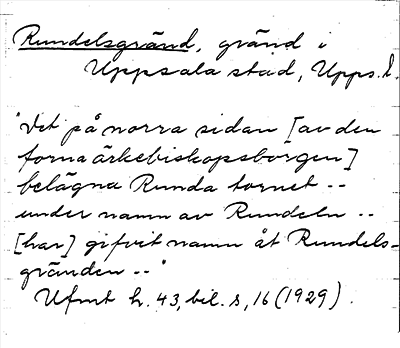 Rundelsgränd, gränd i
Uppsala stad, Upps. l.
"Det på norra sidan [av den
forna ärkebiskopsborgen]
belägna Runda tornet --
under namn av Rundeln --
[har] gifvit namn åt Rundels-
gränden --"
Ufmt h. 43, bil. s, 16 (1929).